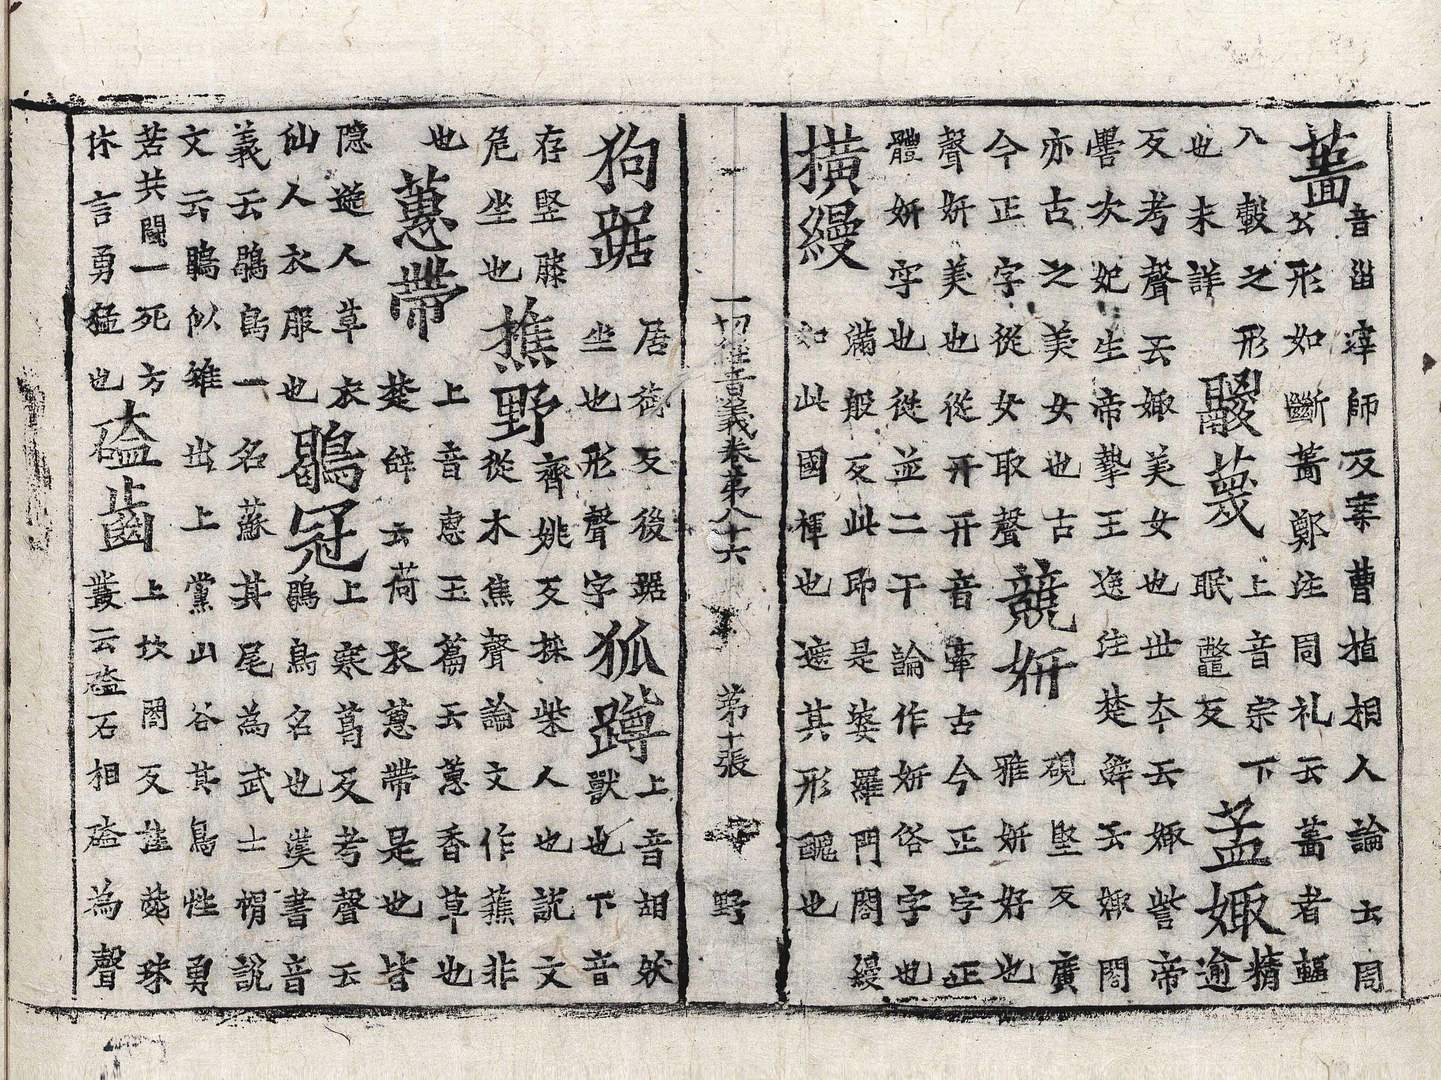 菑 音甾滓師反案曹植相人論云周
公形如斷菑鄭注周礼云菑者輻
入轂之形
也未詳 鬷蔑 上音宗下
眠鼈反 孟娵 精逾
反考聲云娵美女也丗夲云娵訾帝
嚳次妃生帝摯王逸注楚辝云娵閭
亦古之美女也古
今正字從女取聲 競妍 硯堅反廣
雅妍好也
聲妍美也從开开音牽古今正字正
體妍字也從並二干論作妍俗字也
橫縵 滿般反此即是婆羅門閻縵
如此國褌也遮其形醜也
一切經音義卷第八十六 第十張 野
狗踞 居御反後踞
坐也形聲字 狐蹲 上音胡狀
獸也下音
存竪膝
危坐也 樵野 齊姚反採柴人也說文
從木焦聲論文作蕉非
也 蕙帶 上音惠玉篇云蕙香草也
楚辝云荷衣蕙帶是也皆
隱遊人草衣
仙人衣服也 鶡冠 上寒葛反考聲云
鶡鳥名也漢書音
義云鶡鳥一名蘇其尾為武士帽說
文云鶡似雉出上黨山谷其鳥性勇
若共鬪一死方
休言勇猛也 磕齒 上坎閤反桂菀珠
叢云磕石相磕為聲